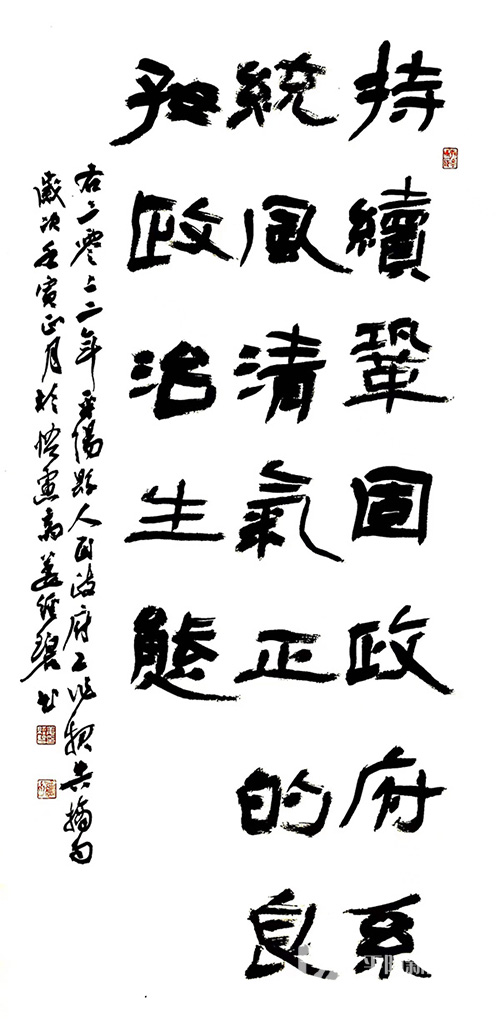 持續鞏固政府系
統風清氣正的良
好政治生態
右二零二二年平陽縣人民政府工作報告摘句
歲次壬寅正月於悟齋姜經碧書